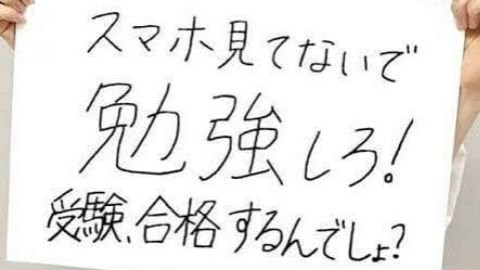 スマホ見てないで
勉強しろ!
受験、合格するんでしょ?